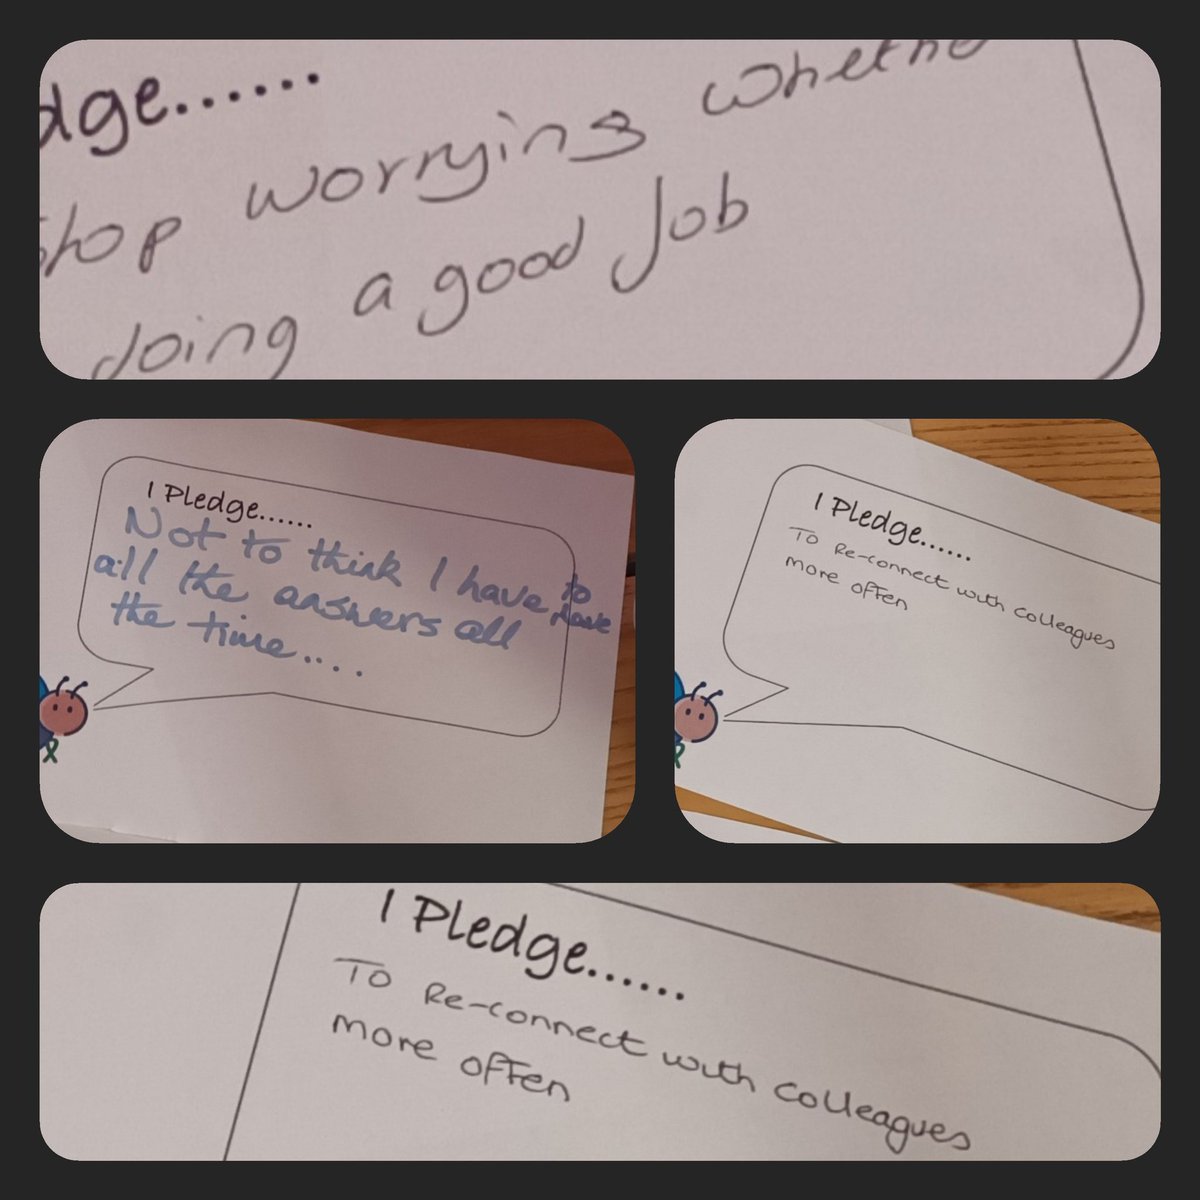 dge......
stop worrying whethe
doing a good Job
I Pledge......
Not to think I have to
all the answers all have
the time....
I Pledge......
To Re-connect with colleagues
more often
I Pledge......
To Re-connect with colleagues
more often